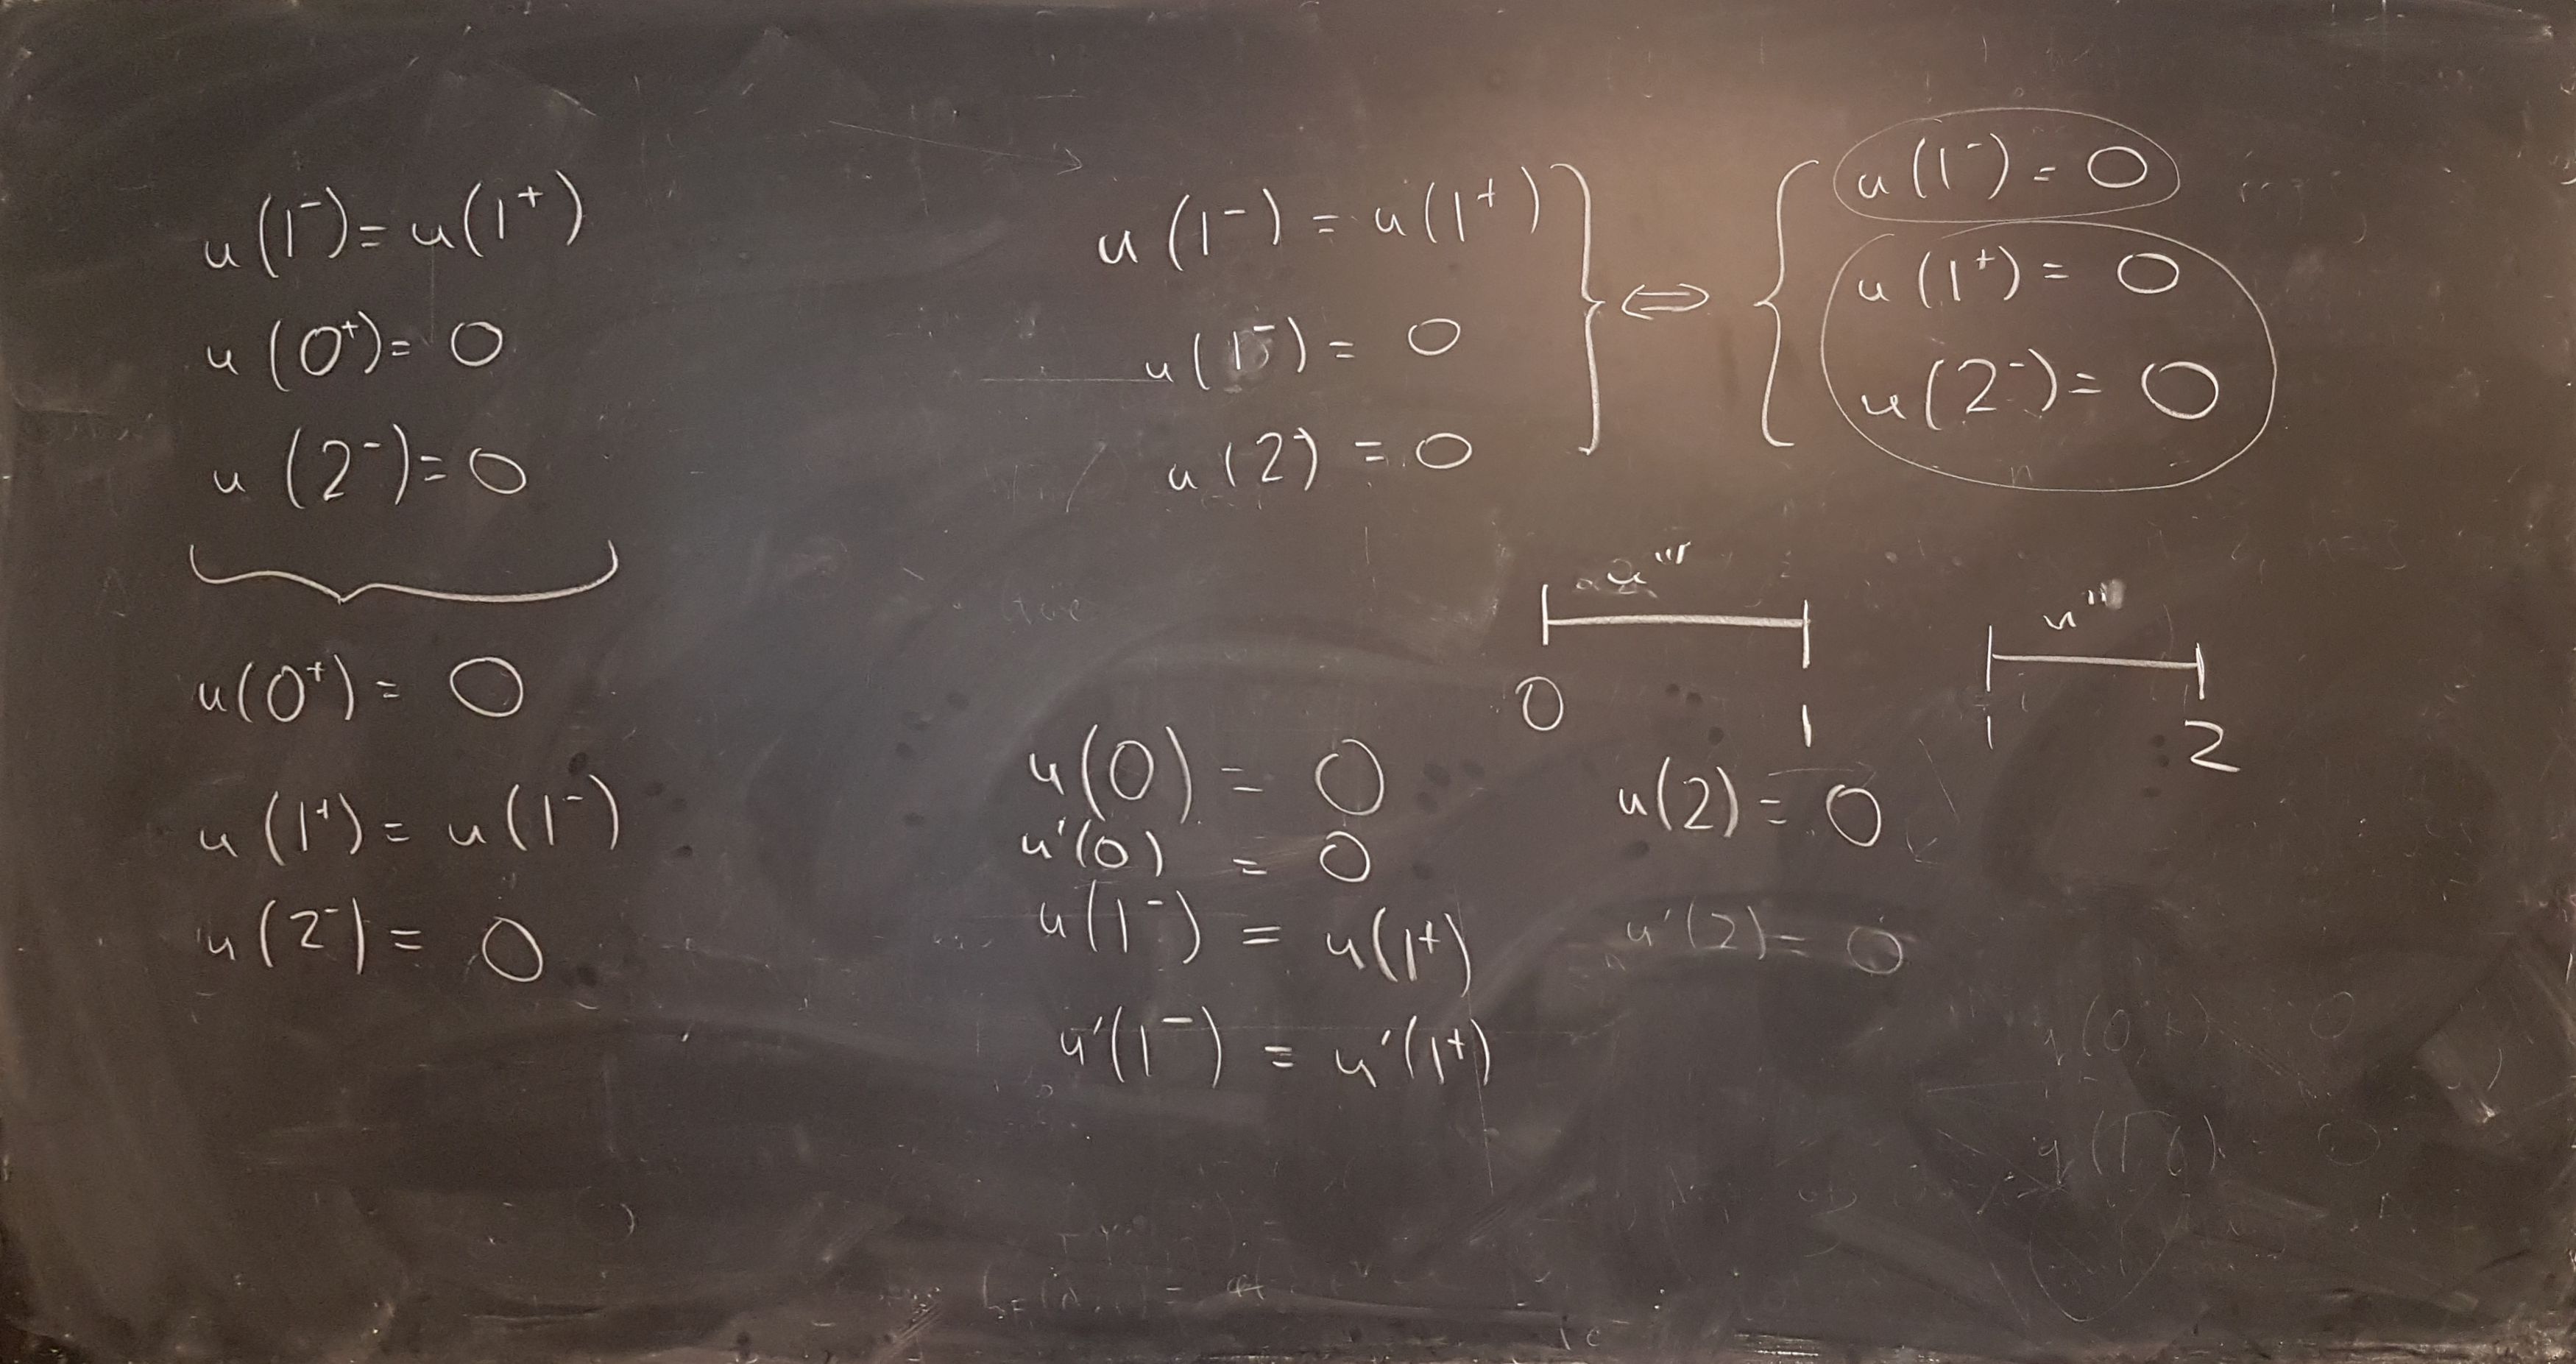 u(1⁻) = u(1⁺)
u(0⁺) = 0
u(2⁻) = 0
u(0⁺) = 0
u(1⁺) = u(1⁻)
u(2⁻) = 0
u(1⁻) = u(1⁺)
u(1⁻) = 0
u(2⁻) = 0
⇔
u(1⁻) = 0
u(1⁺) = 0
u(2⁻) = 0
u'''
0 1
u'''
1 2
u(0) = 0
u'(0) = 0
u(1⁻) = u(1⁺)
u'(1⁻) = u'(1⁺)
u(2) = 0
u'(2) = 0